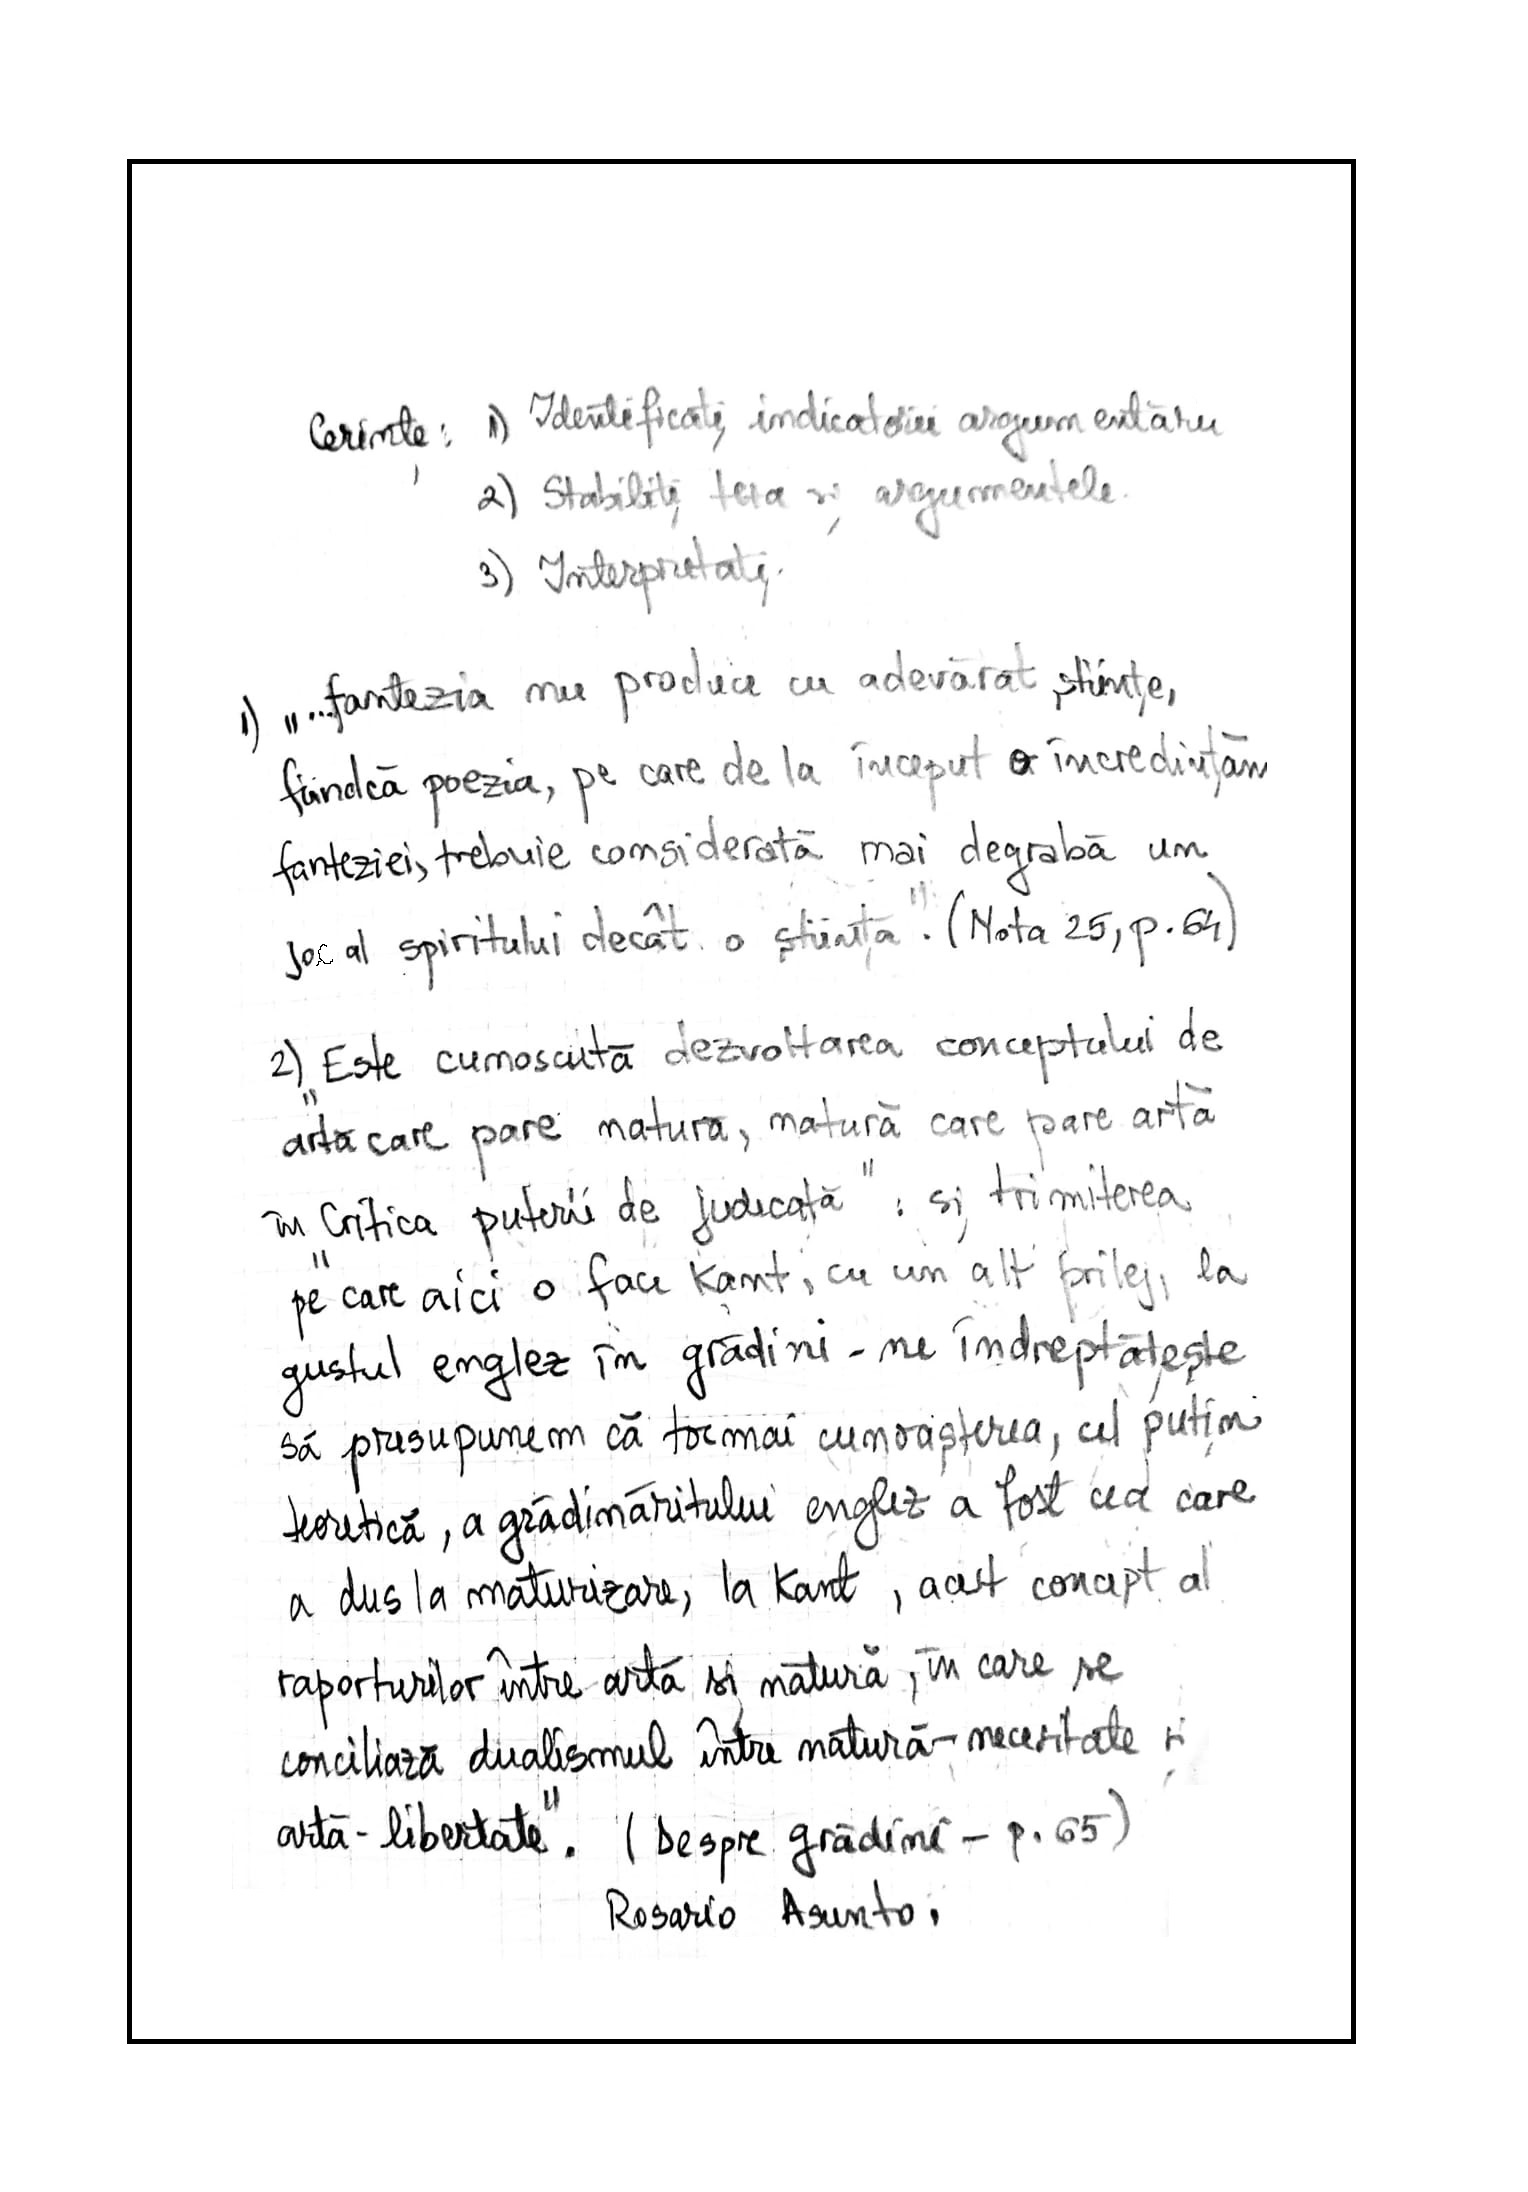 Cerințe: 1) Identificați indicatorii argumentării
2) Stabiliți teza și argumentele.
3) Interpretați.
1) "...fantezia nu produce cu adevărat științe,
fiindcă poezia, pe care de la început o încredințăm
fanteziei, trebuie considerată mai degrabă un
joc al spiritului decât o știință". (Nota 25, p. 64)
2) "Este cunoscută dezvoltarea conceptului de
artă care pare natură, natură care pare artă
în "Critica puterii de judecată": și trimiterea
pe care aici o face Kant, cu un alt prilej, la
gustul englez în grădini - ne îndreptățește
să presupunem că tocmai cunoașterea, cel puțin
teoretică, a grădinăritului englez a fost cea care
a dus la maturizare, la Kant, acest concept al
raporturilor între artă și natură, în care se
conciliază dualismul între natură-necesitate și
artă-libertate". (Despre grădini - p. 65)
Rosario Asunto.